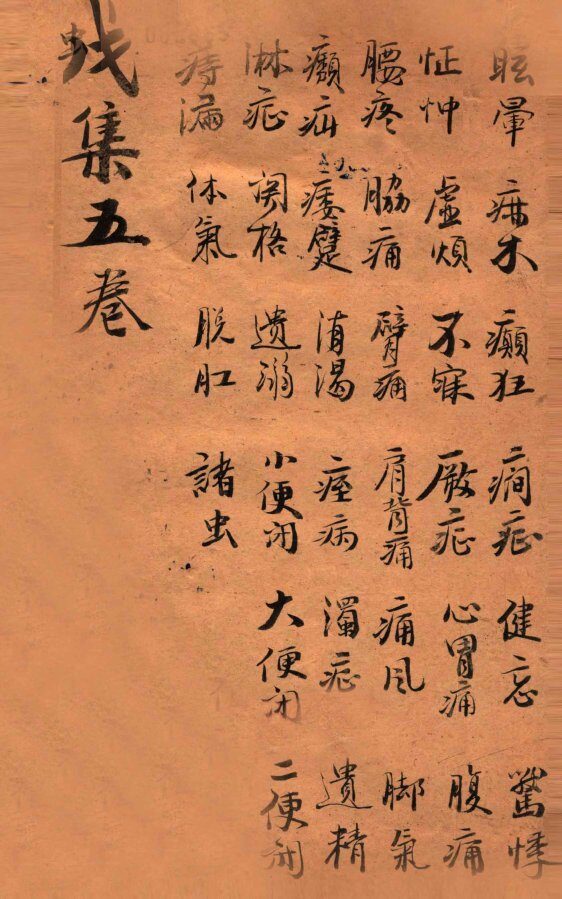 眩暈 痳木 癲狂 癇症 健忘 驚悸
怔忡 虛煩 不寐 厥症 心胃痛 腹痛
腰疼 脇痛 臂痛 肩背痛 痛风 脚氣
癩疝 痿躄 消渴 痓病 濁症 遺精
淋症 関格 遺溺 小便閉 大便閉 二便閉
痔漏 体氣 脱肛 諸虫
集五卷